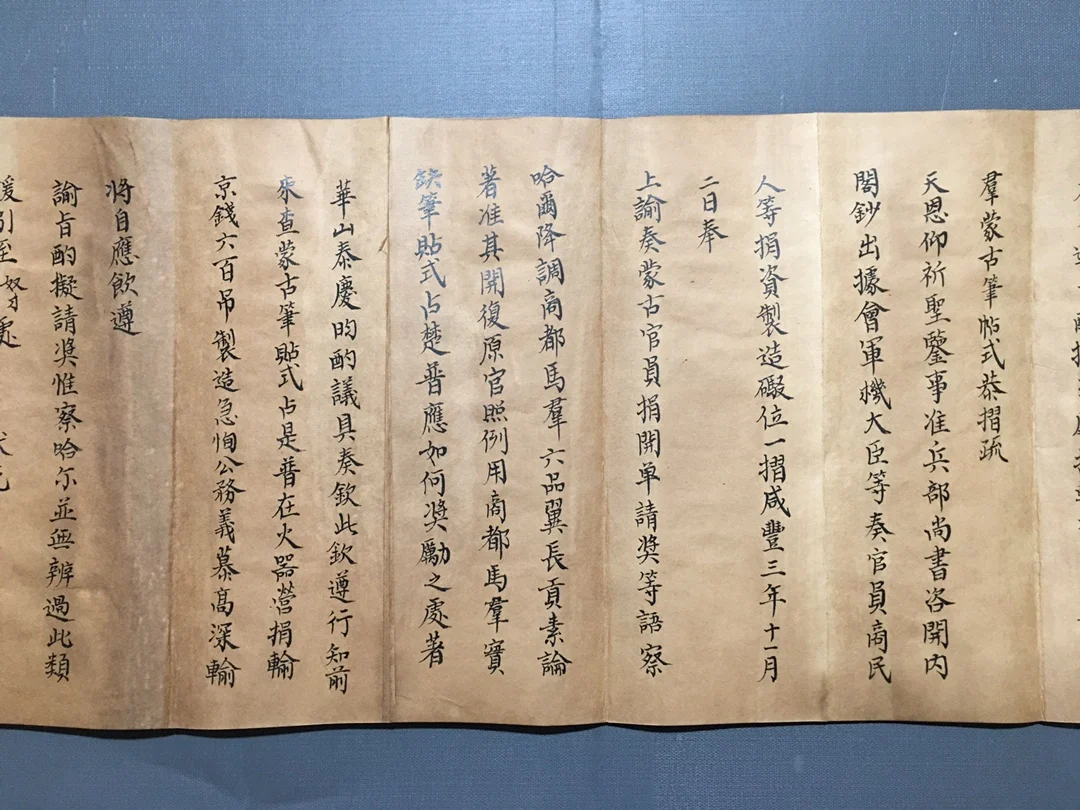 羣蒙古筆帖式恭摺疏
天恩仰祈聖鑒事准兵部尚書咨開內
閣鈔出據會軍機大臣等奏官員商民
人等捐資製造礮位一摺咸豐三年十一月
二日奉
上諭奏蒙古官員捐開单請奖等語察
哈爾降調商都馬羣六品翼長貢素論
著准其開復原官照例用商都馬羣實
缺筆貼式占楚普應如何奖勵之處著
華山泰慶昀酌議具奏欽此欽遵行知前
來查蒙古筆貼式占是普在火器營捐輸
京錢六百吊製造急怕公務義慕高深輸
將自應飲遵
諭旨酌擬請奖惟察哈尔並無辨過此類
援引至